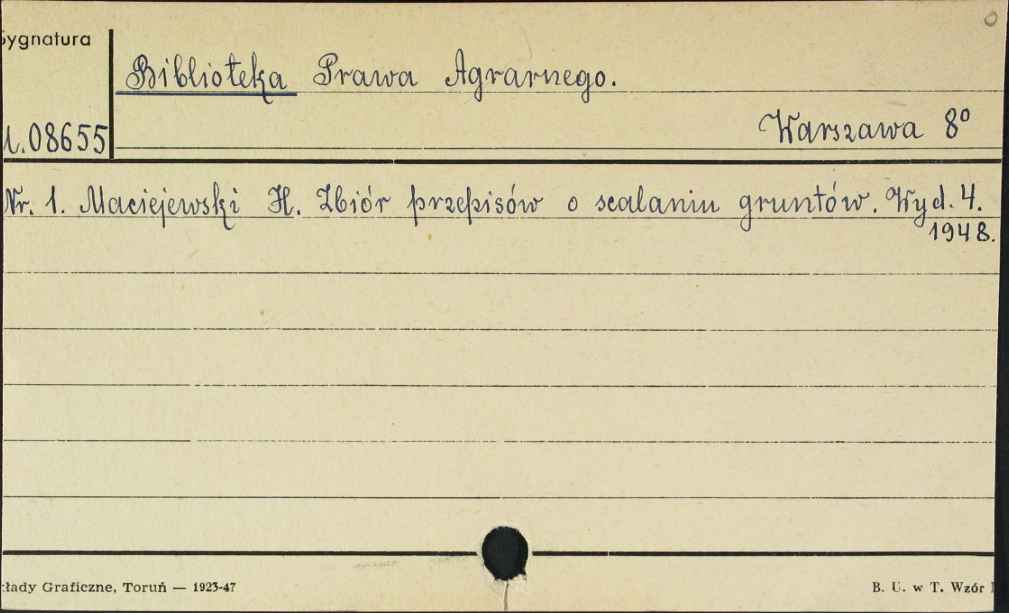 Sygnatura
Biblioteka Prawa Agrarnego.
Warszawa 8°
08655
Nr. 1. Maciejewski H. Zbiór przepisów o scalaniu gruntów. Wyd. 4.
1948.
kłady Graficzne, Toruń — 1923-47
B. U. w T. Wzór